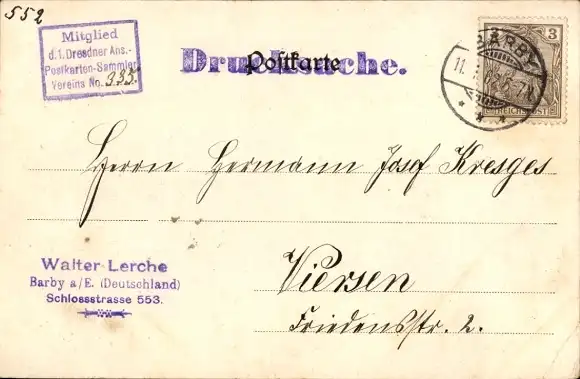 552
Mitglied
d. 1. Dresdner Ans.-
Postkarten-Sammler
Vereins No. 335.
Postkarte
Drucksache.
3
BARBY
11.
REICHSPOST
Herrn Hermann Josef Kresges
Viersen
Friedensstr. 2.
Walter Lerche
Barby a/E. (Deutschland)
Schlossstrasse 553.